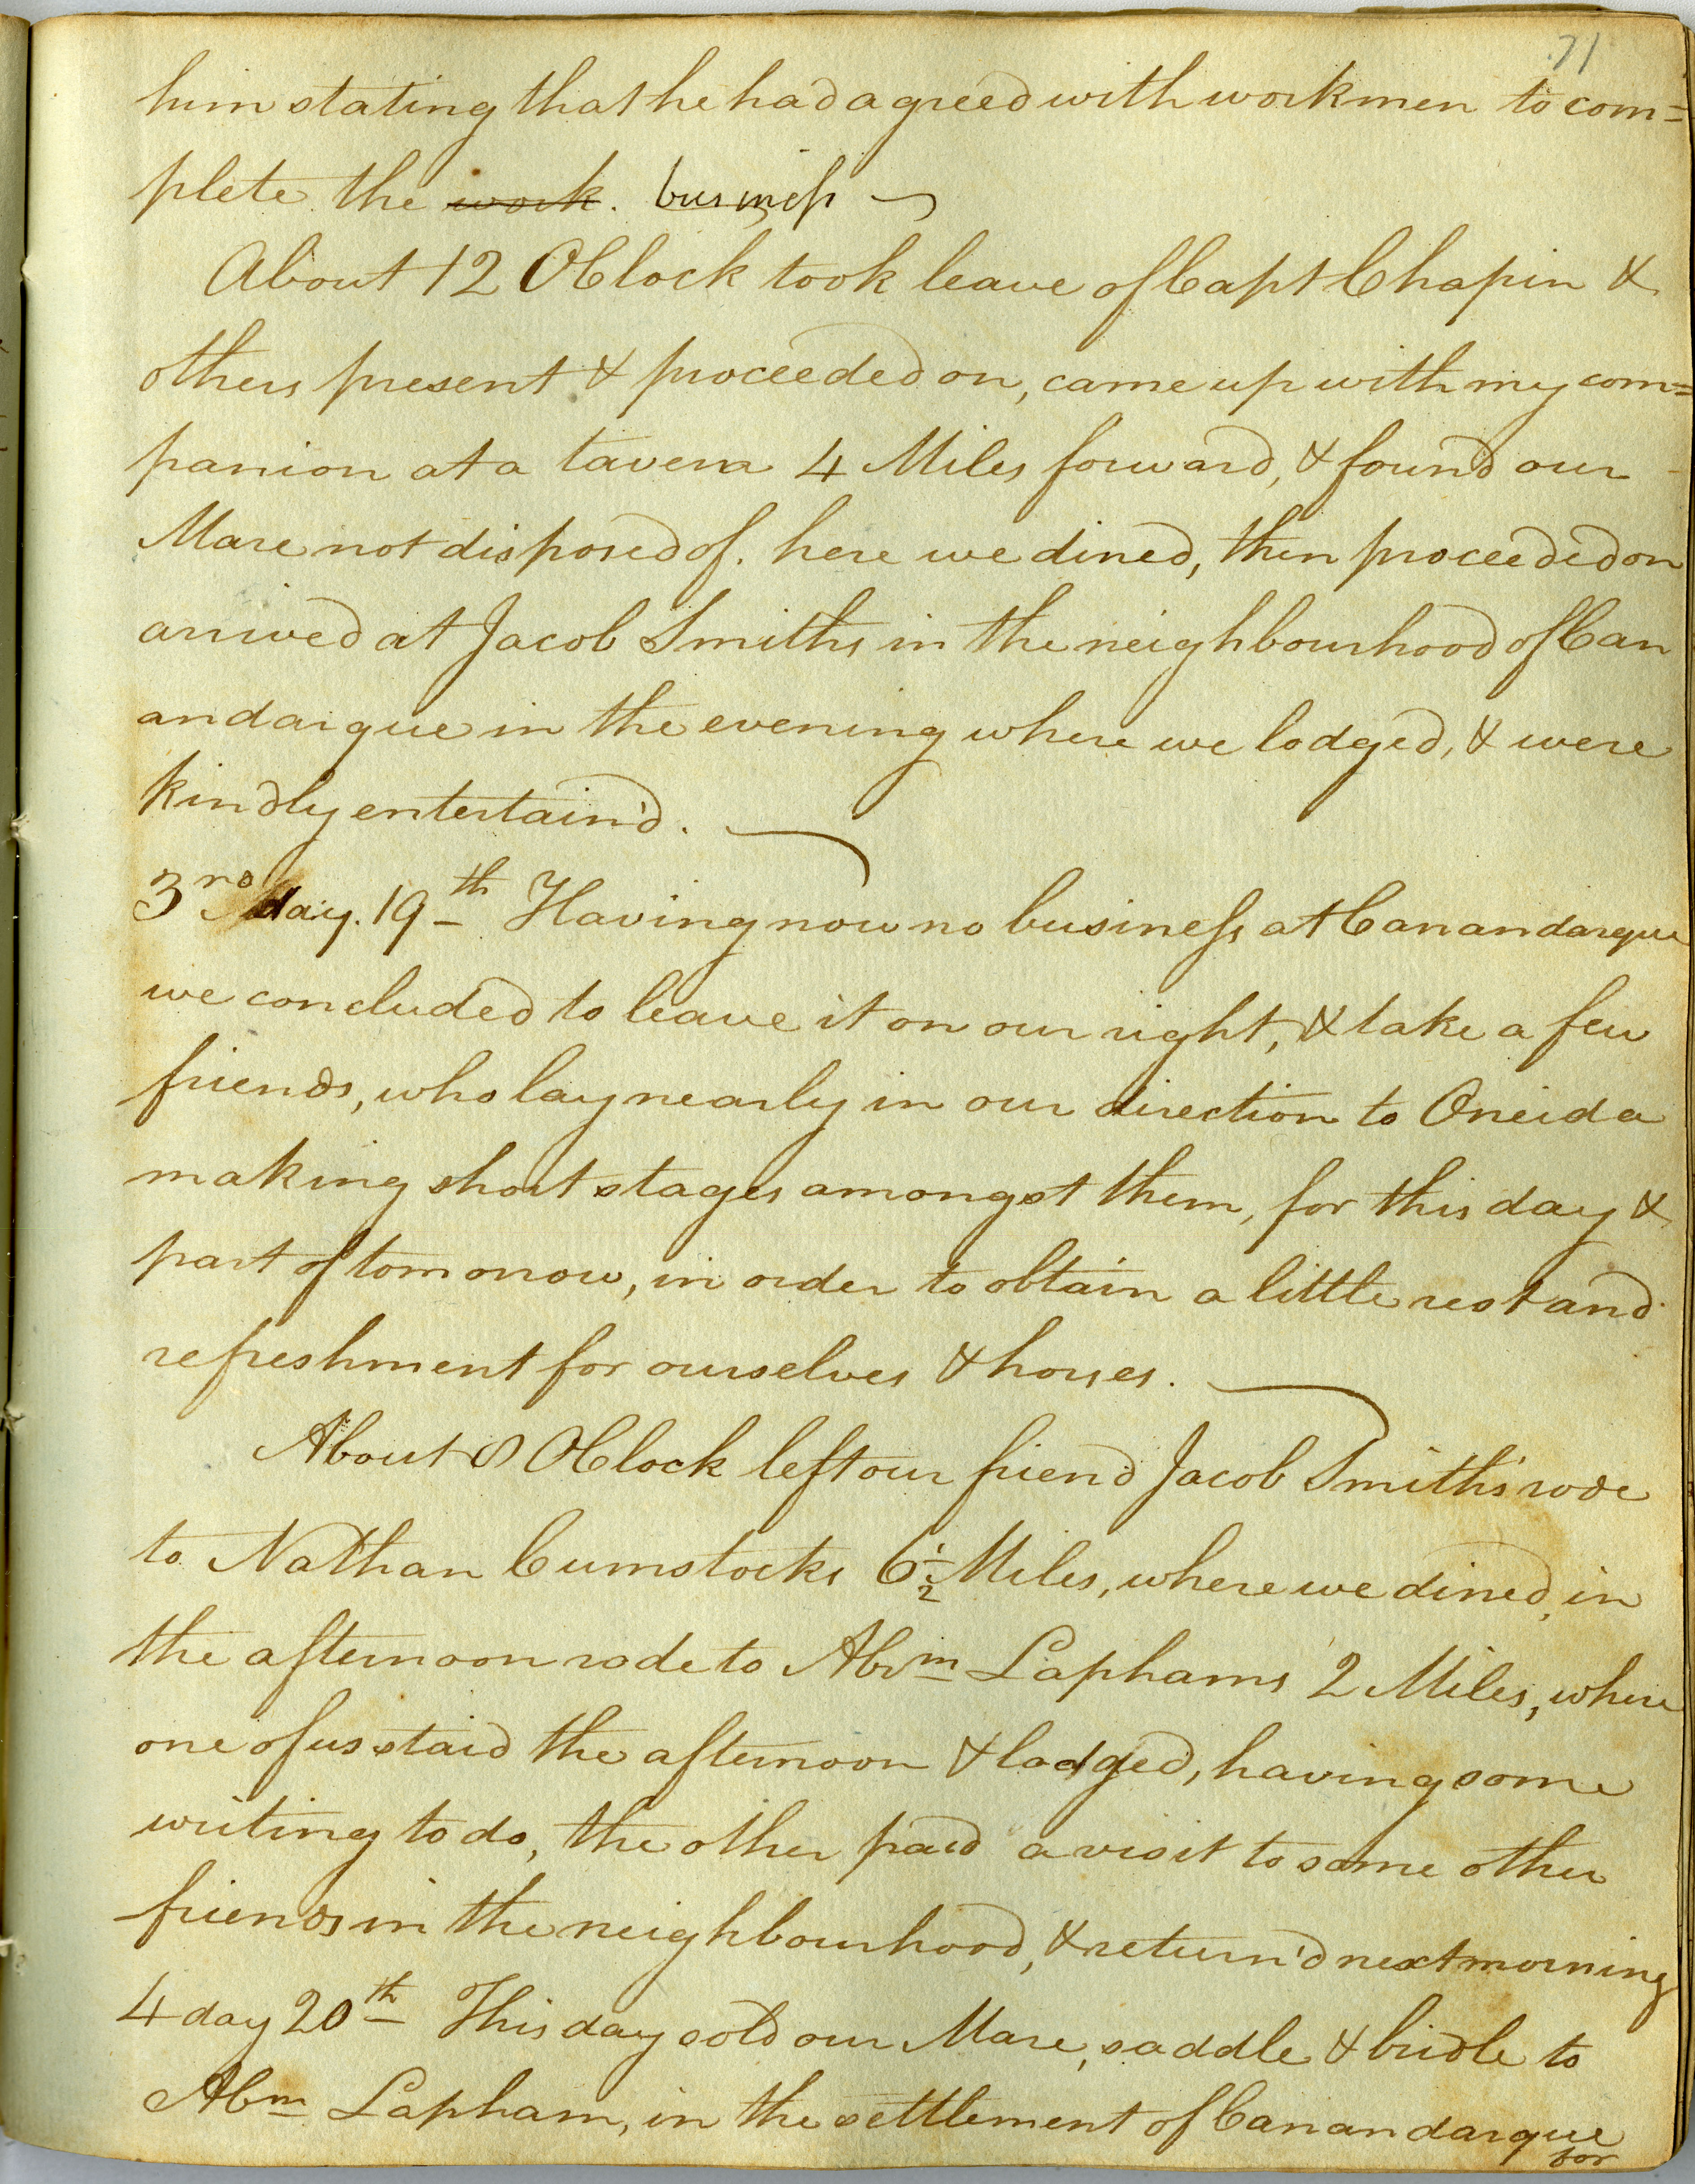 71
him stating that he had agreed with workmen to com=
plete the work. business
About 12 OClock took leave of Capt Chapin &
others present & proceeded on, came up with my com=
panion at a tavern 4 Miles forward, & found our
Mare not disposed of. here we dined, then proceeded on
arrived at Jacob Smiths in the neighbourhood of Can
andaigue in the evening where we lodged, & were
kindly entertain'd.
3rd day. 19th Having now no business at Canandargue
we concluded to leave it on our right, & take a few
friends, who lay nearly in our direction to Oneida
making short stages amongst them, for this day &
part of tomorrow, in order to obtain a little rest and
refreshment for ourselves & horses.
About 8 OClock left our friend Jacob Smith's rode
to Nathan Cumstocks 6 1/2 Miles, where we dined, in
the afternoon rode to Abm Laphams 2 Miles, where
one of us staid the afternoon & lodged, having some
writing to do, the other paid a visit to some other
friends in the neighbourhood, & return'd next morning
4 day 20th This day sold our Mare, saddle & bridle to
Abm Lapham, in the settlement of Canandargue
for